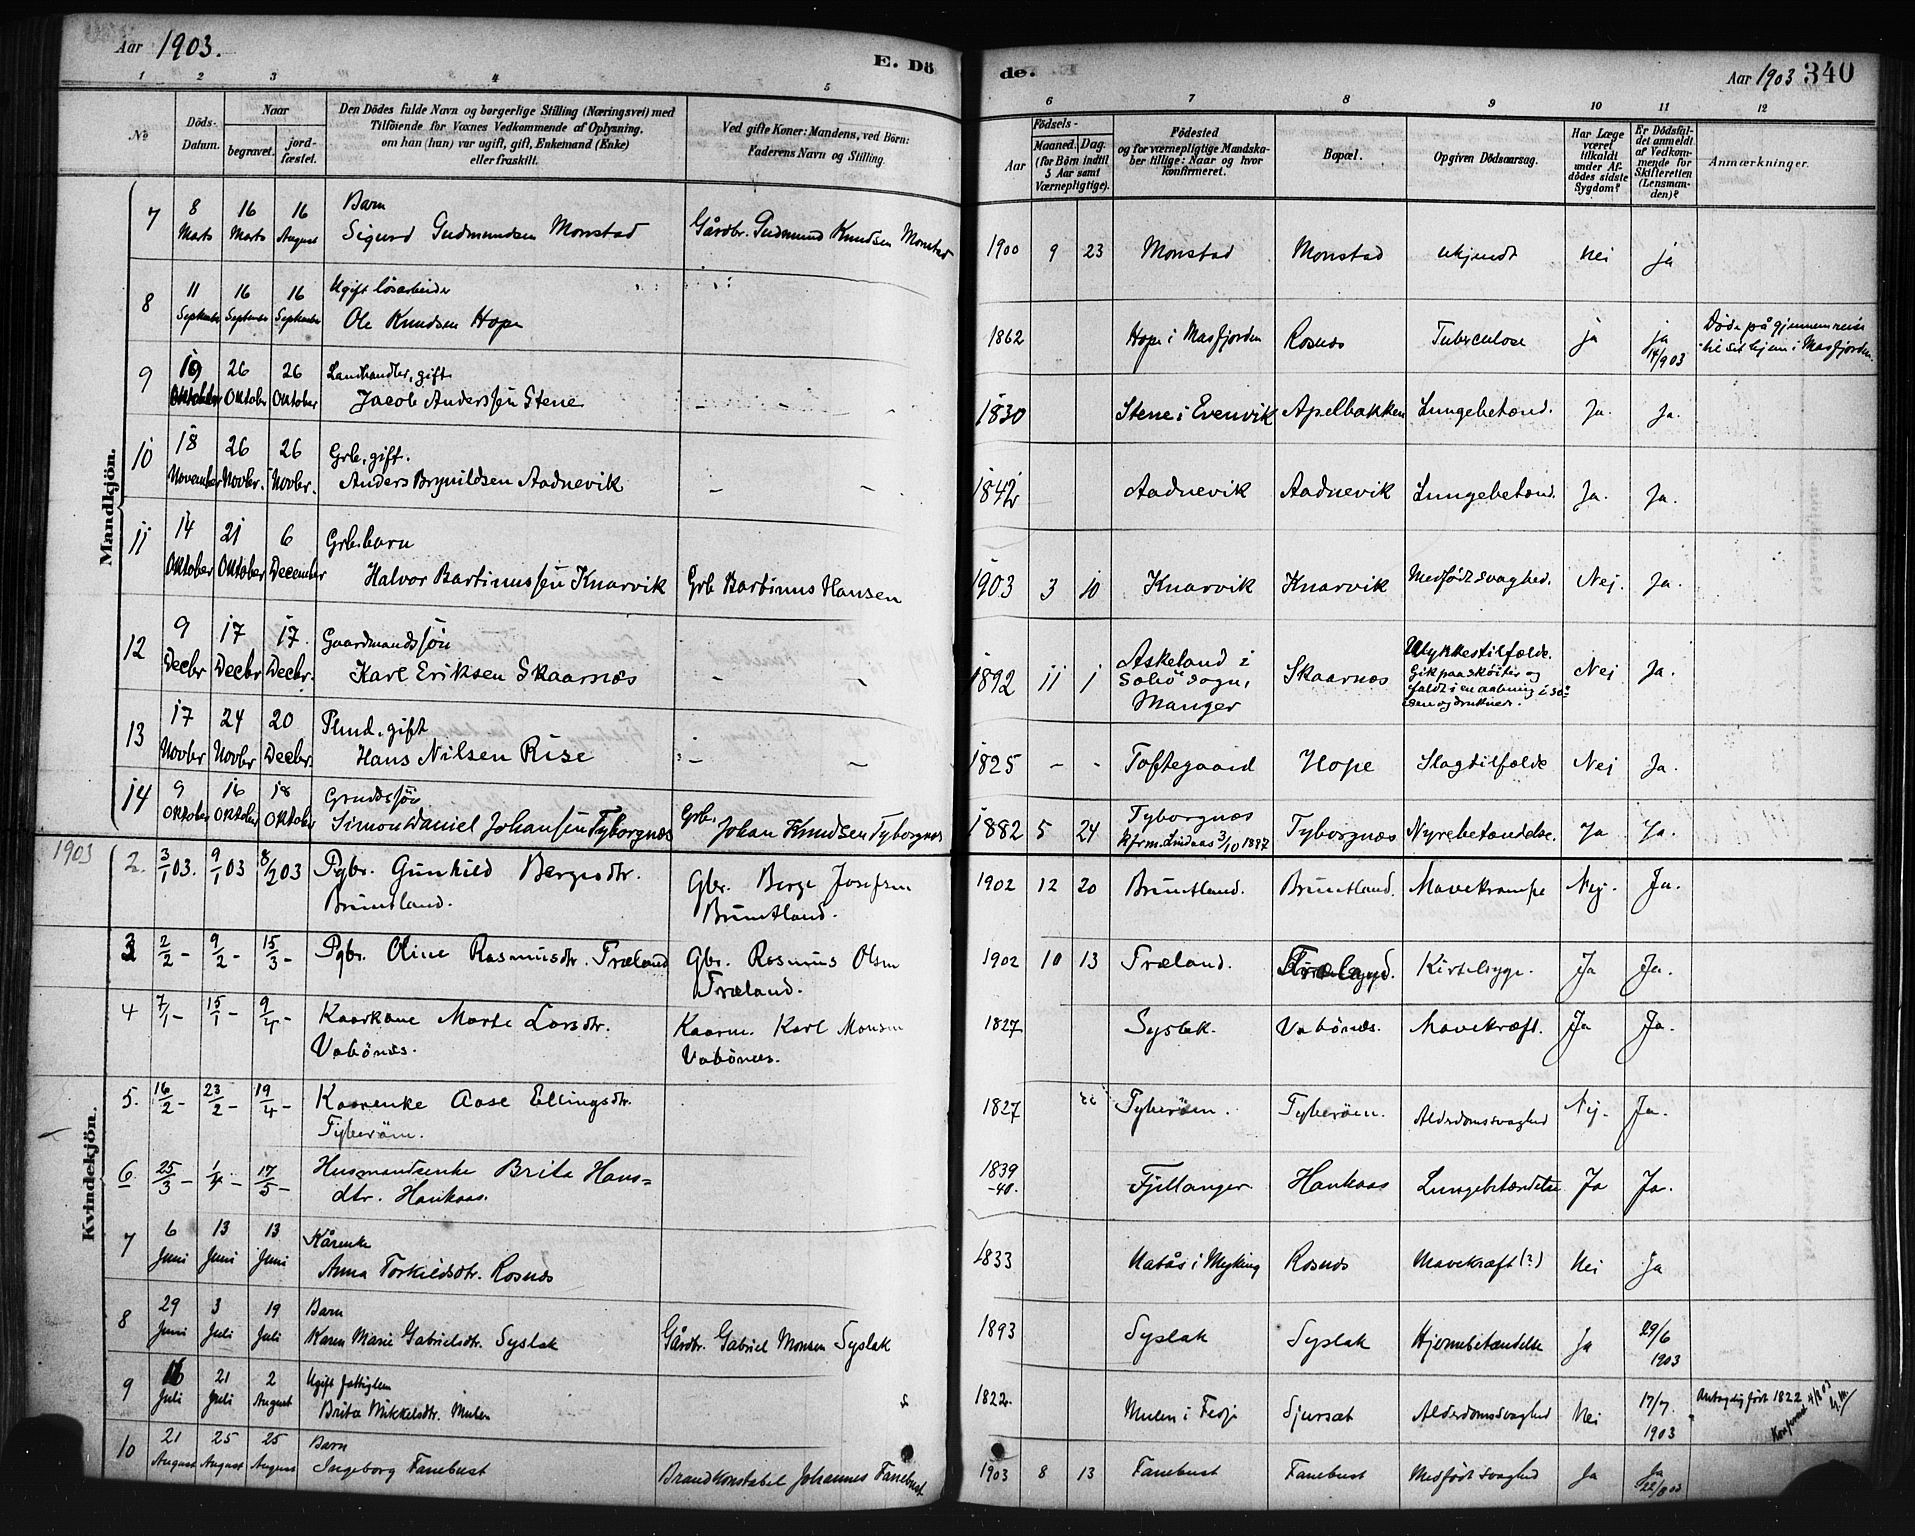 Aar 1903.
E. Dö
de.
Aar 1903 340
1 2 3 4 5 6 7 8 9 10 11 12
No
Döds-
Datum.
Naar
begravet.
jord-
fæstet.
Den Dödes fulde Navn og borgerlige Stilling (Næringsvei) med
Tilföiende for Voxnes Vedkommende af Oplysning,
om han (hun) var ugift, gift, Enkemand (Enke)
eller fraskilt.
Ved gifte Koner: Mandens, ved Börn:
Faderens Navn og Stilling.
Födsels-
Aar
Maaned. Dag.
(for Börn indtil
5 Aar samt
Værnepligtige).
Födested
og for værnepligtige Mandska-
ber tillige: Naar og hvor
konfirmeret.
Bopæl.
Opgiven Dödsaarsag.
Har Læge
været
tilkaldt
under Af-
dödes sidste
Sygdom?
Er Dödsfal-
det anmeldt
af Vedkom-
mende for
Skifteretten
(Lensman-
den)?
Anmærkninger.
Mandkjön.
7 8 Marts 16 Marts 16 August Barn
Sigurd Gudmundsen Monstad Gårdbr. Gudmund Knudsen Monstad 1900 9 23 Monstad Monstad ukjendt Nei ja
8 11 September 16 September 16 September Ugift løsarbeider
Ole Knudsen Hope 1862 Hope i Masfjorden Rosnes Tuberculose ja ja 14/9 03 Døde på gjennemreise
til sit hjem i Masfjorden.
9 19 Oktober 26 Oktober 26 Oktober Landhandler, gift
Jacob Anderssen Stene – – – 1830 Stene i Evenvik Apelbakken Lungebetænd. Ja. Ja.
10 18 November 26 Novbr. 26 Novbr. Grb., gift.
Anders Brynildsen Aadnevik – – 1842 Aadnevik Aadnevik Lungebetænd. Ja. Ja.
11 14 Oktober 21 Oktober 6 December Grb. barn
Halvor Bartinussen Knarvik Grb Bartinus Hansen 1903 3 10 Knarvik Knarvik Medfødt svaghed. Nej. Ja.
12 9 Decbr 17 Decbr 17. Decbr. Gaardmandssøn
Karl Eriksen Skaarnæs – – 1892 11 1 Askeland i
Sæbø sogn,
Manger Skaarnæs Ulykkestilfælde.
Gik paa skøiter og
faldt i en aabning i
og druknede. Nej Ja.
13 17 Novbr 24 Novbr 20 Decbr. gift
Hans Nilsen Rise – – 1825 – – Toftegaard Hope Slagtilfælde Nej Ja.
14 9 Oktober 16 Oktober 18 Oktober
Simon Daniel Johansen Tyborgnæs Grb. Johan Knudsen Tyborgnæs 1882 5 24 Tyborgnæs
kfrm. Lindaas 3/10 1897 Tyborgnæs Nyrebetændelse. Ja Ja.
1903
Kvindekjön.
2. 3/1 03. 9/1 03 8/2 03 Pgbr. Gunhild Bergesdtr.
Bruntland. Gbr. Berge Josefsen
Bruntland. 1902 12 20 Bruntland. Bruntland. Mavekrampe Nej. Ja.
3 2/2 – 9/2 – 15/3 – Pgbr. Oline Rasmusdtr. Træland Gbr. Rasmus Olsen
Træland. 1902 10 13 Træland. Kirtelsyge. Ja Ja.
4 7/1 – 15/1 – 9/4 – Kaarkone Marte Larsdtr.
Vabønes. Kaarm. Karl Monsen
Vabønes. 1827 Syslak. Vabønes. Mavekræft. Ja Ja.
5. 16/2 – 23/2 – 19/4 – Kaarenke Aase Ellingsdtr.
1827 Nej. Ja. Alderdomssvaghed
6 25/3 – 1/4 – 17/5 – Husmandsenke Brita Hans=
dtr. Haukaas. 1839
-40. Fjellanger Haukaas Lungebetændelse Ja Ja.
7 6 Juni 13 Juni 13 Juni Kårenke
Anna Torkildsdtr. Rosnes 1833 Natås i Myking Rosnes Mavekræft (?) Nei Ja
8 29 Juni 3 Juli 19 Juli Barn
Karen Marie Gabrielsdtr. Syslak Gårdbr. Gabriel Monsen Syslak 1893 Syslak Syslak Hjernebetændelse Ja 29/6
1903
9 16 Juli 21 Juli 2 August Ugift fattiglem
Brita Mikkelsdtr. Mulen 1822 Mulen i Fedje Sjursæt Alderdomssvaghed Nei 17/7.
1903 Antagelig født 1822
10 21 August 25 August 25 August Barn
Ingeborg Fanebust Brandkonstabel Johannes Fanebust 1903 8 13 Fanebust Fanebust Medfødt svaghed Ja Ja
22/8 03